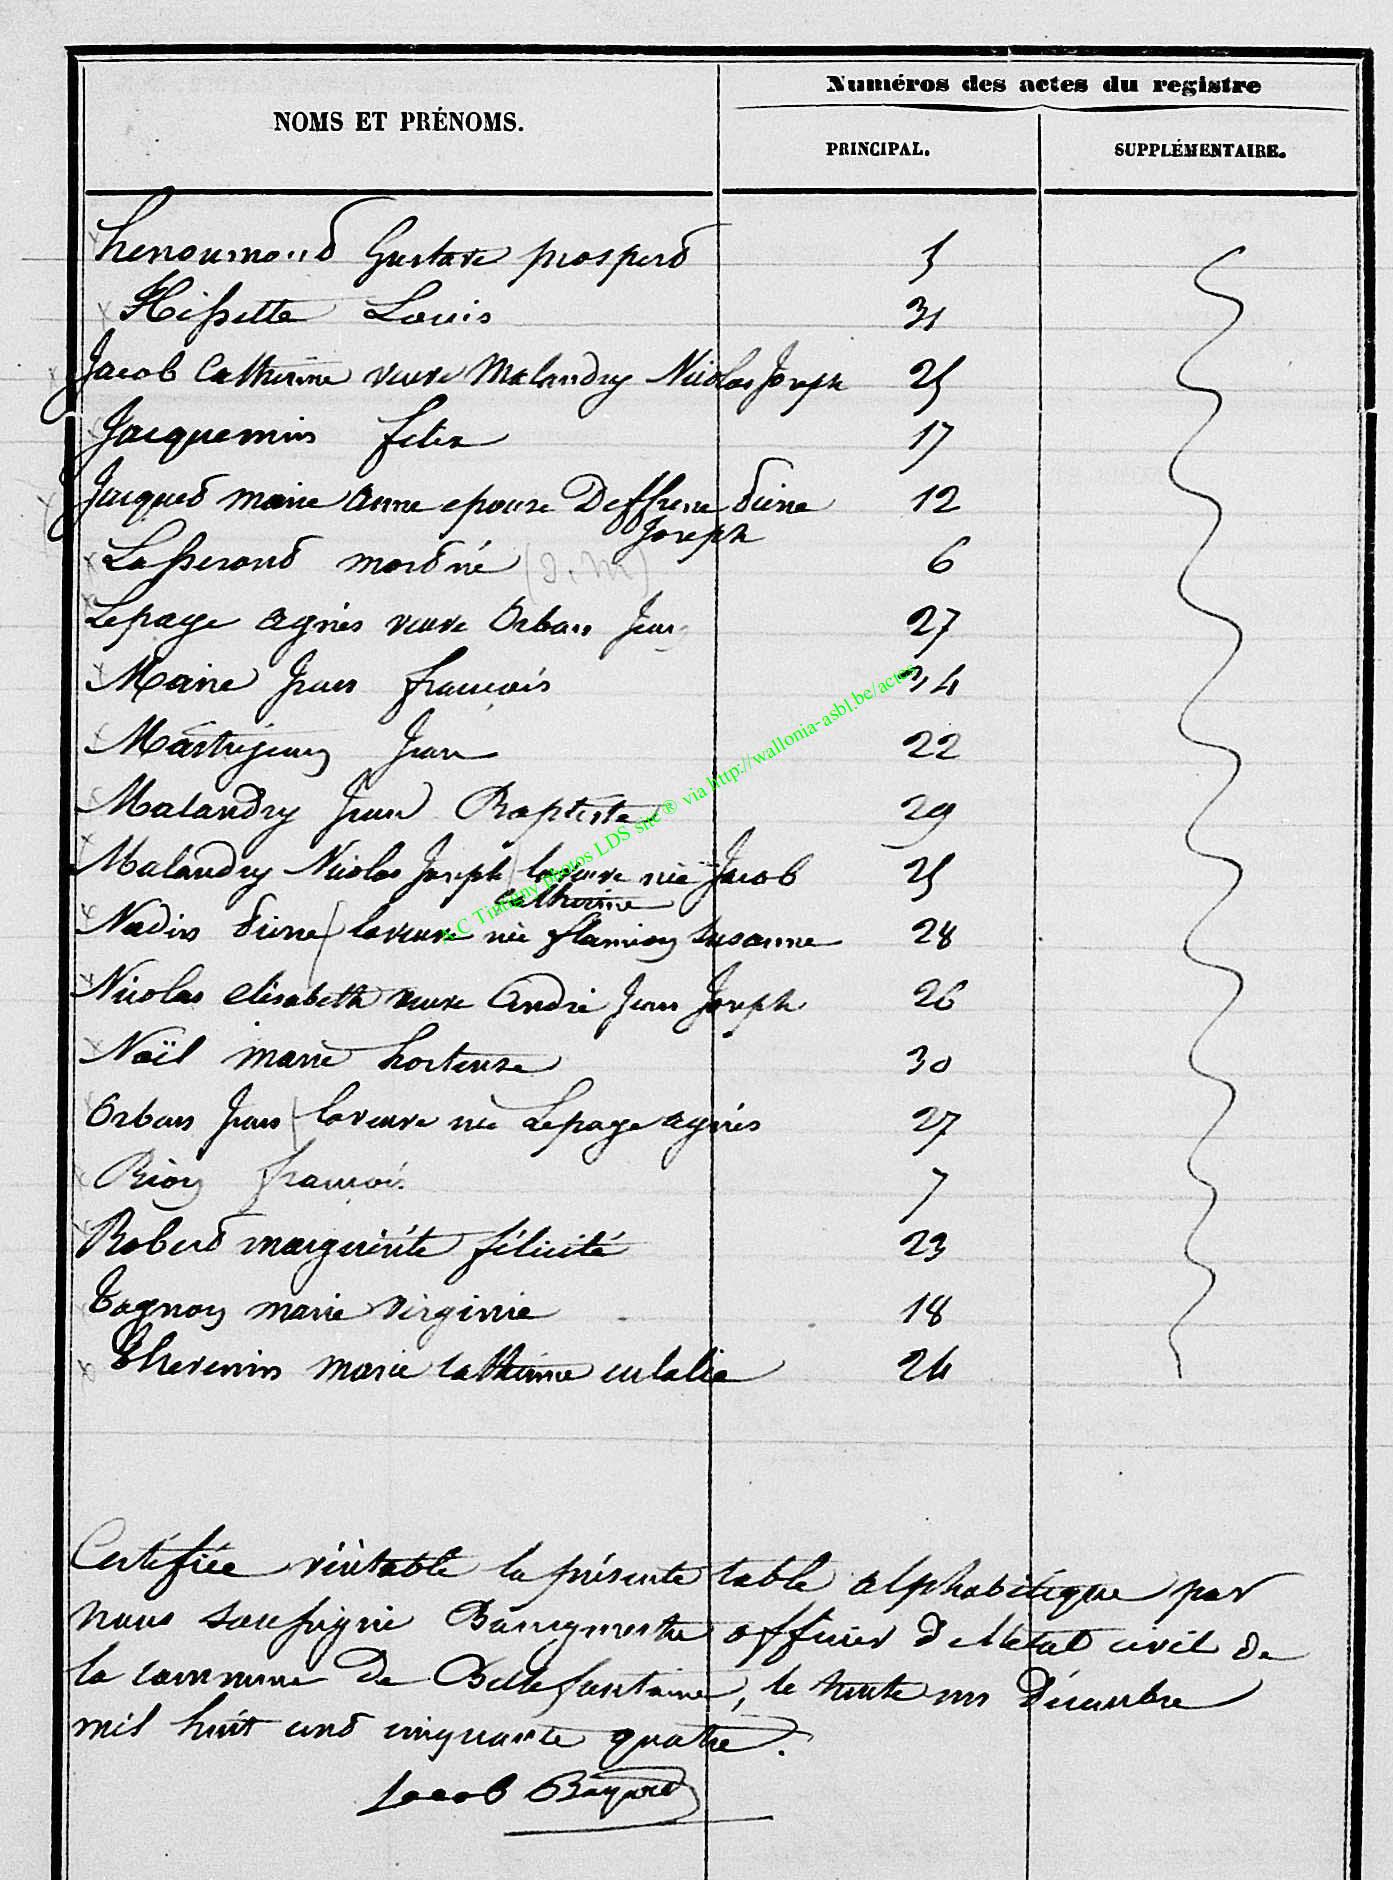 Numéros des actes du registre
NOMS ET PRÉNOMS.
PRINCIPAL.
SUPPLÉMENTAIRE.
henoumond Gustave prosperd 5
Hissette Louis 31
Jacob Catherine veuve Malandry Nicolas Joseph 25
Jacquemin felix 17
Jacqued marie Anne epouse Deffrene
Joseph 12
Lasserond mordné 6
Lepage agnès veuve Orban Jean 27
Maire Jean françois 34
Mastrejean Jean 22
Malandry Jean Baptiste 29
Malandry Nicolas Joseph la veuve née Jacob 25
catherine
Nadin la veuve née flamion susanne 28
Nicolas elisabeth veuve André Jean Joseph 26
Noël marie hortense 30
Orban Jean la veuve née Lepage agnès 27
Rion françois 7
Roberd marguerite félicité 23
Tagnon marie Virginie 18
Thevenin marie catherine eulalie 24
A.C Tintigny photos LDS site® via http://wallonia-asbl.be/actes
Certifiée véritable la présente table alphabétique par
nous soussigné Bourgmestre officier de l'état civil de
la commune de Bellefontaine, le trente un Décembre
mil huit cend cinquante quatre.
Jacob Bayard